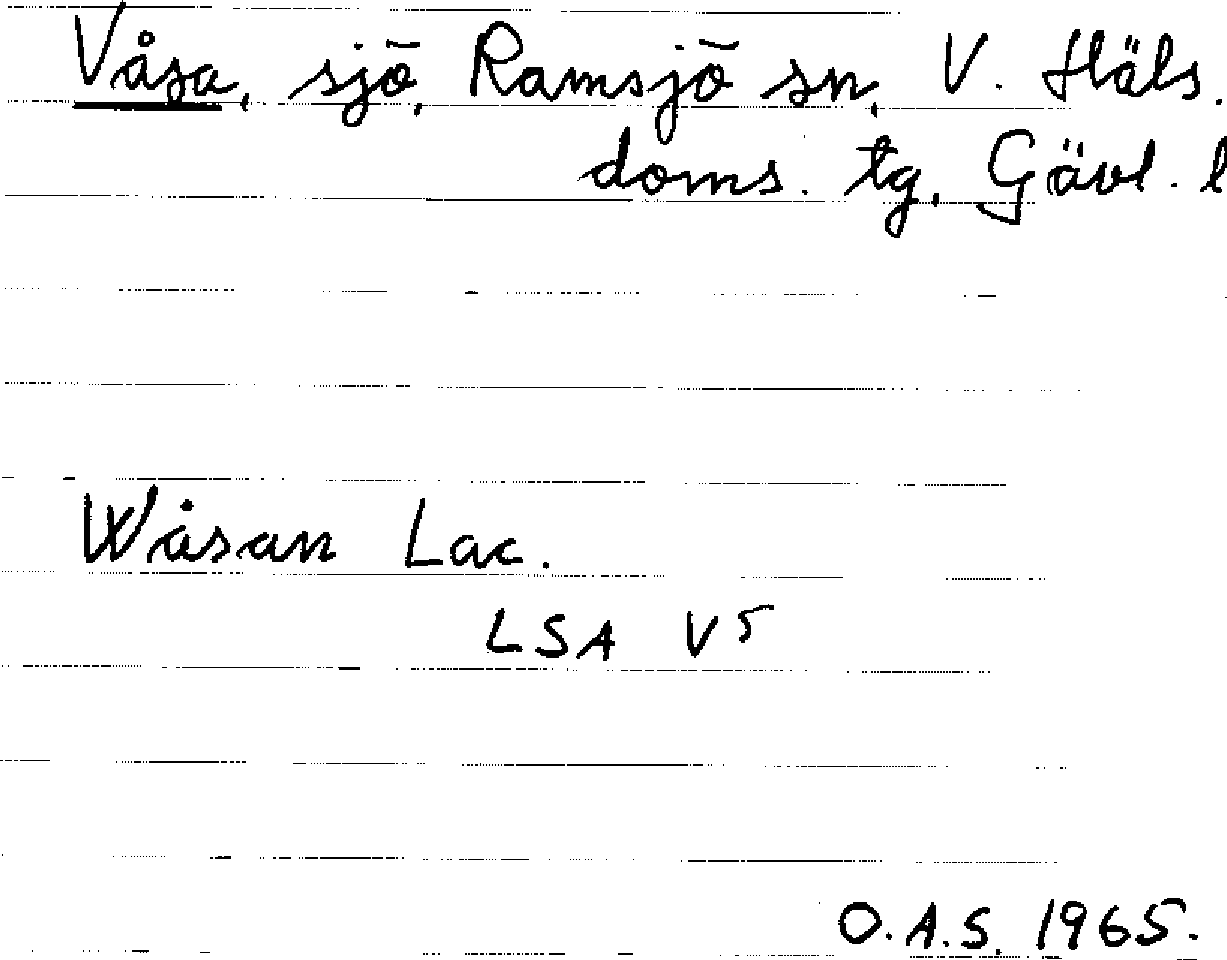 Våsa, sjö, Ramsjö sn, V. Häls.
doms. tg, Gävl. l
Wåsan Lac.
LSA V5
O.A.S. 1965.